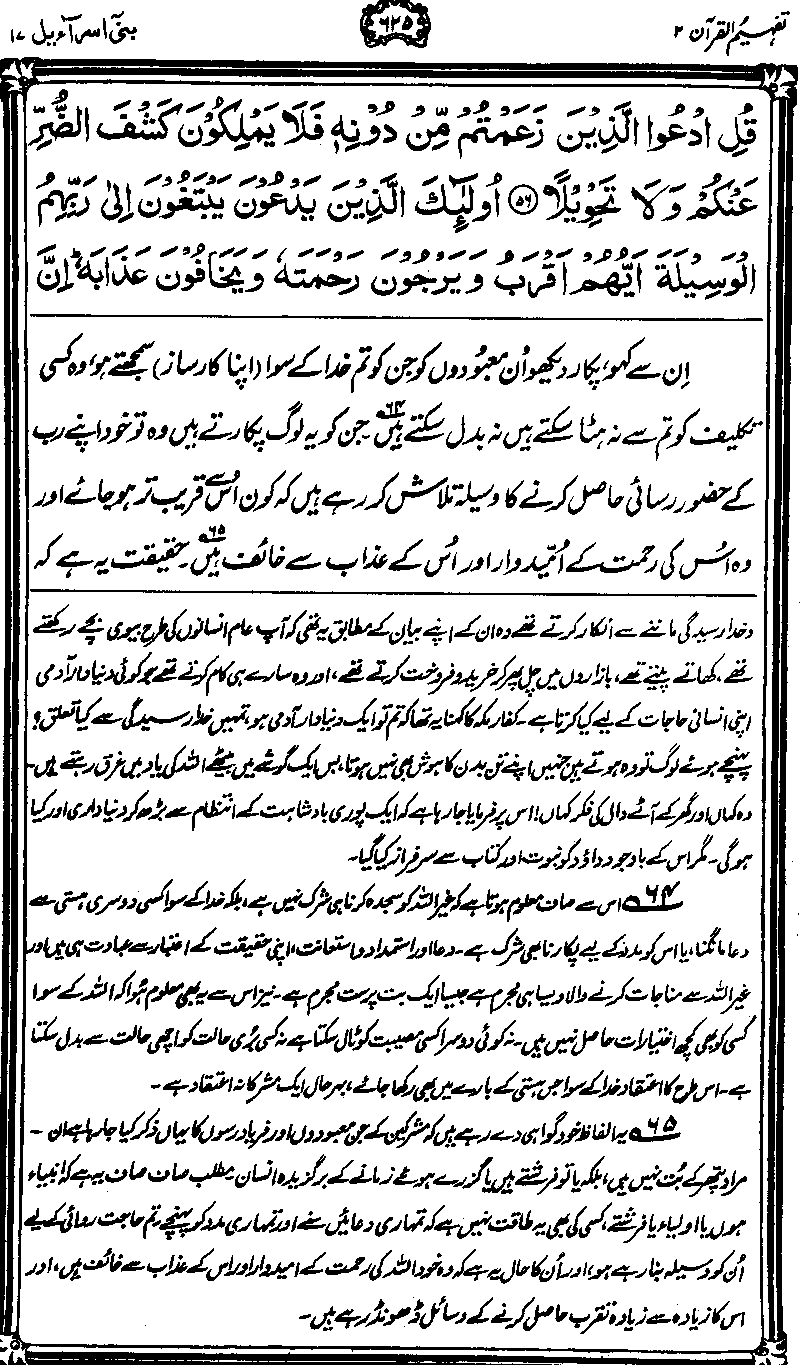 تفہیم القرآن ۲
۶۲۵
بنی اسرآءیل ۱۷
قُلِ ادْعُوا الَّذِيْنَ زَعَمْتُمْ مِّنْ دُوْنِهٖ فَلَا يَمْلِكُوْنَ كَشْفَ الضُّرِّ
عَنْكُمْ وَلَا تَحْوِيْلًا ۝۵۶ اُولٰٓئِكَ الَّذِيْنَ يَدْعُوْنَ يَبْتَغُوْنَ اِلٰى رَبِّهِمُ
الْوَسِيْلَةَ اَيُّهُمْ اَقْرَبُ وَيَرْجُوْنَ رَحْمَتَهٗ وَيَخَافُوْنَ عَذَابَهٗ ؕ اِنَّ
اِن سے کہو، پکار دیکھو اُن معبُودوں کو جن کو تم خدا کے سوا (اپنا کارساز) سمجھتے ہو، وہ کسی
تکلیف کو تم سے نہ ہٹا سکتے ہیں نہ بدل سکتے ہیں۔۶۴ جن کو یہ لوگ پکارتے ہیں وہ تو خود اپنے رب
کے حضُور رسائی حاصل کرنے کا وسیلہ تلاش کر رہے ہیں کہ کون اُس سے قریب تر ہو جائے اور
وہ اُس کی رحمت کے اُمّیدوار اور اُس کے عذاب سے خائف ہیں۔۶۵ حقیقت یہ ہے کہ
وخدا رسیدگی ماننے سے انکار کرتے تھے وہ ان کے اپنے بیان کے مطابق یہ تھی کہ آپ عام انسانوں کی طرح بیوی بچے رکھتے
تھے، کھاتے پیتے تھے، بازاروں میں چل پھر کر خرید و فروخت کرتے تھے، اور وہ سارے ہی کام کرتے تھے جو کوئی دنیا دار آدمی
اپنی انسانی حاجات کے لیے کیا کرتا ہے۔ کفار مکہ کا کہنا یہ تھا کہ تم تو ایک دنیا دار آدمی ہو، تمہیں خدا رسیدگی سے کیا تعلق؟
پہنچے ہوئے لوگ تو وہ ہوتے ہیں جنہیں اپنے تن بدن کا ہوش بھی نہیں ہوتا، بس ایک گوشے میں بیٹھے اللہ کی یاد میں غرق رہتے ہیں۔
وہ کہاں اور گھر کے آٹے دال کی فکر کہاں! اس پر فرمایا جا رہا ہے کہ ایک پوری بادشاہت کے انتظام سے بڑھ کر دنیا داری اور کیا
ہوگی۔ مگر اس کے باوجود داؤد کو نبوت اور کتاب سے سرفراز کیا گیا۔
۶۴ اس سے صاف معلوم ہوتا ہے کہ غیر اللہ کو سجدہ کرنا ہی شرک نہیں ہے، بلکہ خدا کے سوا کسی دوسری ہستی سے
دعا مانگنا، یا اس کو مدد کے لیے پکارنا بھی شرک ہے۔ دعا اور استمداد و استعانت، اپنی حقیقت کے اعتبار سے عبادت ہی ہیں اور
غیر اللہ سے مناجات کرنے والا ویسا ہی مجرم ہے جیسا ایک بت پرست مجرم ہے۔ نیز اس سے یہ بھی معلوم ہُوا کہ اللہ کے سوا
کسی کو بھی کچھ اختیارات حاصل نہیں ہیں۔ نہ کوئی دوسرا کسی مصیبت کو ٹال سکتا ہے نہ کسی بُری حالت کو اچھی حالت سے بدل سکتا
ہے۔ اس طرح کا اعتقاد خدا کے سوا جس ہستی کے بارے میں بھی رکھا جائے، بہرحال ایک مشرکانہ اعتقاد ہے۔
۶۵ یہ الفاظ خود گواہی دے رہے ہیں کہ مشرکین کے جن معبودوں اور فریاد رسوں کا یہاں ذکر کیا جا رہا ہے ان۔
مراد پتھر کے بُت نہیں ہیں، بلکہ یا تو فرشتے ہیں یا گزرے ہوئے زمانے کے برگزیدہ انسان۔ مطلب صاف صاف یہ ہے کہ انبیاء
ہوں یا اولیاء یا فرشتے، کسی کی بھی یہ طاقت نہیں ہے کہ تمہاری دعائیں سنے اور تمہاری مدد کو پہنچے۔ تم حاجت روائی کے لیے
اُن کو وسیلہ بنا رہے ہو، اور اُن کا حال یہ ہے کہ وہ خود اللہ کی رحمت کے امیدوار اور اس کے عذاب سے خائف ہیں، اور
اس کا زیادہ سے زیادہ تقرب حاصل کرنے کے وسائل ڈھونڈ رہے ہیں۔